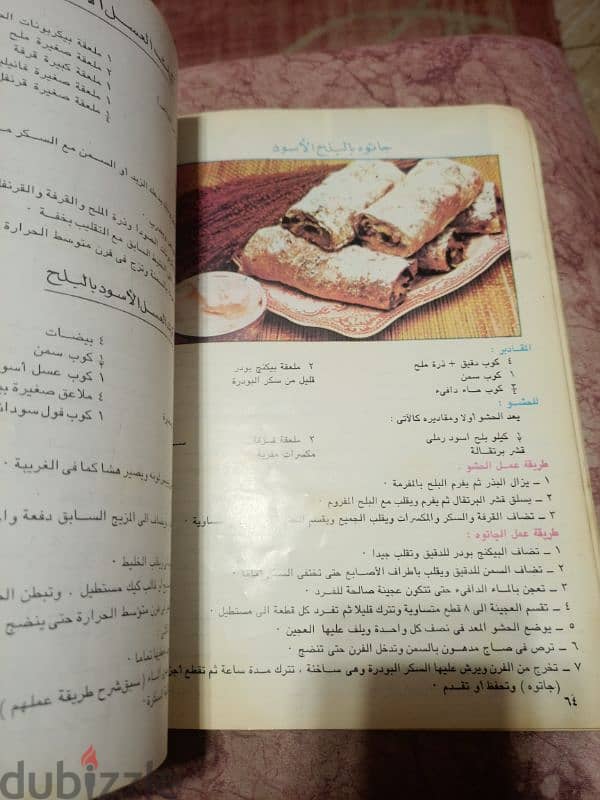 جاتوه بالبلح الأسود
المقادير :
٤ كوب دقيق + ذرة ملح
٢ ملعقة بيكنج بودر
١ كوب سمن
قليل من سكر البودرة
كوب ماء دافىء
للحشو :
يعد الحشو أولا ومقاديره كالآتى :
كيلو بلح أسود رملى
٢ ملعقة قرفة
قشر برتقالة
مكسرات مفرية
طريقة عمل الحشو .
١ ــ يزال البذر ثم يفرم البلح بالمفرمة ٠
٢ ــ يسلق قشر البرتقال ثم يفرم ويقلب مع البلح المفروم ٠
٣ ــ تضاف القرفة والسكر والمكسرات ويقلب الجميع ويقسم ساوية ٠
طريقة عمل الجاتوه :
١ ــ تضاف البيكنج بودر للدقيق وتقلب جيدا ٠
٢ ــ تضاف السمن للدقيق ويقلب باطراف الأصابع حتى تختفى السمن تماما ٠
٣ ــ تعجن بالماء الدافىء حتى تتكون عجينة صالحة للفرد ٠
٤ ــ تقسم العجينة الى ٨ قطع متساوية وتترك قليلا ثم تفرد كل قطعة الى مستطيل ٠
٥ ــ يوضع الحشو المعد فى نصف كل واحدة ويلف عليها العجين ٠
٦ ــ ترص فى صاج مدهون بالسمن وتدخل الفرن حتى تنضج ٠
٧ ــ تخرج من الفرن ويرش عليها السكر البودرة وهى ساخنة ، تترك مدة ساعة ثم تقطع
(جاتوه) وتحفظ أو تقدم ٠
٦٤
١ ملعقة بيكربونات
١ ملعقة صغيرة ملح
٢ ملعقة كبيرة قرفة
١ ملعقة صغيرة فانيليا
ملعقة صغيرة قرنفل
الزبد او السمن مع السكر
الصودا وذرة الملح والقرفة والقرنفل
السابق مع التقليب بخفة ٠
وتزج فى فرن متوسط الحرارة
العسل الأسود بالبلح
٤ بيضات
كوب سمن
١ كوب عسل أسود
٤ ملاعق صغيرة
١ كوب فول سودانى
ويصير هشا كما فى الغريبة ٠
الى المزيج السابق دفعة
ويقلب الخليط ٠
قالب كيك مستطيل ٠ وتبطن
متوسط الحرارة حتى ينضج
تماما ٠
(سبق شرح طريقة عملهم)
dubizzle